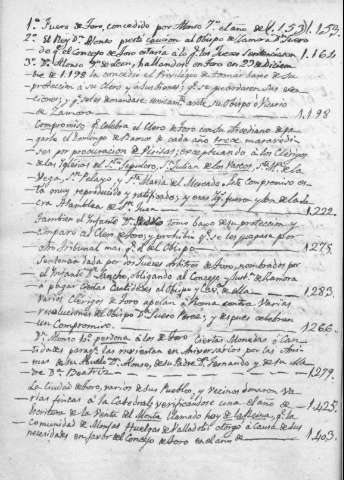 1.ª Fuero de Toro, concedido por Alonso 7.º el año de
2.ª El Rey D.ⁿ Alonso puesto caucion al Obispo de Zamora D.ⁿ Suero
de q.e el Concejo de Toro estaria a lo q.e los Jueces Sentenciaren 1.161
3.ª D.ⁿ Alonso 9.º de Leon, hallandose en Toro en 23 de diciem
bre de 1.198 la concedio el Privilegio de tomar bajo de su
proteccion a su Clero y
ciones; y q.e el demandare ante su Obispo o Vicario
de Zamora 1.198
Compromiso q.e celebra el Clero de Toro con su Arcediano de pa
garle el Domingo de Ramos de cada año trece maravedi
ses por procuracion de Visitas, exceptuando a los Clerigos
de las Iglesias de S.n Sepulcro, S.n Julian de los Varcos, S.n de la
Vega, S.n Pelayo, y S.ta Maria del Mercado. Este Compromiso es
ta muy reproducido y ratificado; y este
cra 1.222
Tambien el Infante D.n tomó bajo de su proteccion y
amparo al Clero de Toro, y prohibio q.e se les juzgase por
otro Tribunal mas q.e el del Obispo 1.275
Sentencia dada por los Jueces Arbitros de Toro, nombrados por
el Infante D.n Sancho, obligando al Concejo de Zamora
a pagar ciertas Cantidades al Obispo y 1.283
Varios Clerigos de Toro apelan a Roma contra Varias
resoluciones del Obispo D.n Suero Perez; y despues celebran
un Compromiso 1.266
D.n Alonso 10.º perdona a los de Toro Ciertas Monedas o Can
tidades para q.e las inviertan en Aniversarios por las Ani
mas de su Abuelo D.n Alonso, de su Padre D.n Fernando y su Ma
dre D.ª Beatriz 1279
La Ciudad de Toro, varios de sus Pueblos, y Vecinos donaron Va
rias fincas a la Catedral, verificandose una el año de 1.425
Escritura de la Venta del Monte llamado hoy de la Reina, q.e la
Comunidad de Monjas Huelgas de Valladolid otorgó a causa de sus
necesidades en favor del Concejo de Toro en el año de 1.403